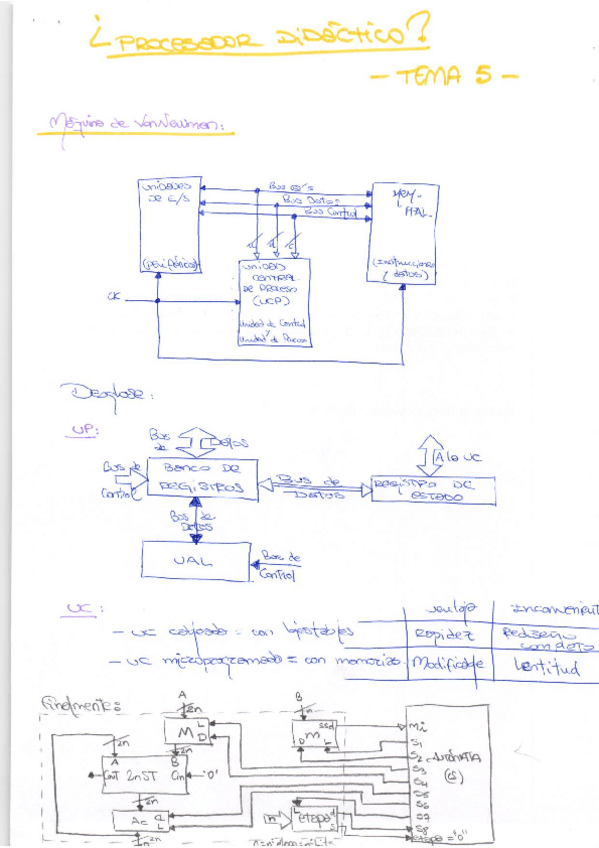 ¿PROCESADOR DIDÁCTICO?
- TEMA 5 -
Máquina de Von Newman:
UNIDADES
DE E/S
(PERIFÉRICOS)
Bus Datos
Bus Control
(Instrucciones
/ datos)
UNIDAD
CENTRAL
DE PROCESO
(UCP)
Unidad de Control
y
Unidad de Proceso
CK
Desglose:
UP:
Bus de Datos
A la UC
Bus de Control
BANCO DE
REGISTROS
Bus de
DATOS
REGISTRO DE
ESTADO
Bus de
DATOS
UAL
Bus de
Control
UC:
ventaja
inconveniente
- UC cableado = con biestables
Rapidez
Rediseño
completo
- UC microprogramado = con memorias
Modificable
Lentitud
Finalmente:
A
2n
B
n
M
L
D
m
D
L
mi
S1
S2
S3
S4
S5
S6
S7
S8
AUTÓMATA
2n
2n
A
B
Cout
2nST
Cin
'0'
2n
Ac
CL
L
n
L
etapa
2n
etapa="0"